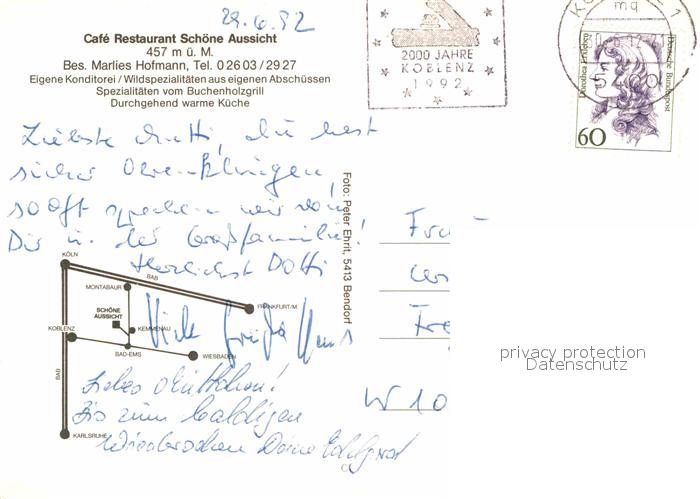 29.6.92
Café Restaurant Schöne Aussicht
457 m ü. M.
Bes. Marlies Hofmann, Tel. 0 26 03 / 29 27
Eigene Konditorei / Wildspezialitäten aus eigenen Abschüssen
Spezialitäten vom Buchenholzgrill
Durchgehend warme Küche
2000 JAHRE
KOBLENZ
1992
Dorothea Erxleben
Deutsche Bundespost
60
Liebste Mutti, du hast
sicher Ohrenklingen,
so oft sprechen wir von
Dir u. der Großfamilie!
Herzlichst Dotti
Viele Grüße Hans
Liebes Muttchen!
Bis zum baldigen
Wiedersehen Deine
Foto: Peter Ehrit, 5413 Bendorf
KÖLN
BAB
MONTABAUR
FRANKFURT/M
SCHÖNE
AUSSICHT
KOBLENZ
KEMMENAU
BAD-EMS
WIESBADEN
BAB
KARLSRUHE
Fra
Fre
W 10
privacy protection
Datenschutz